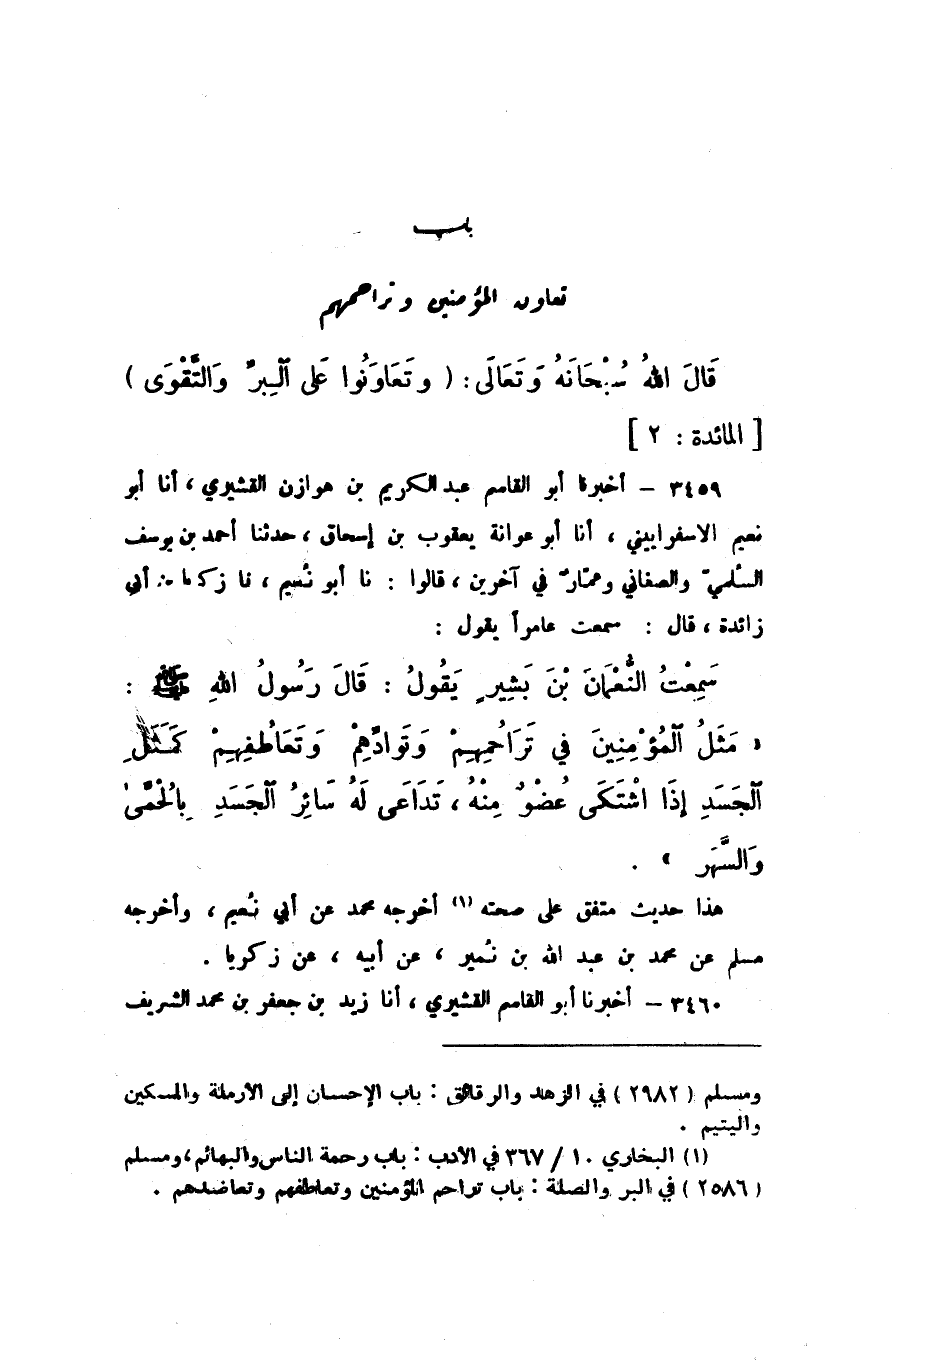 باب
تعاون المؤمنين وتراحمهم
قَالَ اللهُ سُبْحَانَهُ وَتَعَالَى : ( وَتَعَاوَنُوا عَلَى ٱلْبِرِّ وَالتَّقْوَى )
[ المائدة : ٢ ]
٣٤٥٩ – أخبرنا أبو القاسم عبد الكريم بن هوازن القشيري ، أنا أبو
نعيم الاسفراييني ، أنا أبو عوانة يعقوب بن إسحاق ، حدثنا أحمد بن يوسف
السُّلميّ والصغاني وعمّارٌ في آخرين ، قالوا : نا أبو نُعيم ، نا زكريا بن أبي
زائدة ، قال : سمعت عامراً يقول :
سَمِعْتُ النُّعْمَانَ بْنَ بَشِيرٍ يَقُولُ : قَالَ رَسُولُ اللهِ ﷺ :
« مَثَلُ ٱلْمُؤْمِنِينَ فِي تَرَاحُمِهِمْ وَتَوَادِّهِمْ وَتَعَاطُفِهِمْ كَمَثَلِ
ٱلْجَسَدِ إِذَا اشْتَكَى عُضْوٌ مِنْهُ ، تَدَاعَى لَهُ سَائِرُ ٱلْجَسَدِ بِالْحُمَّىٰ
وَالسَّهَرِ » .
هذا حديث متفق على صحته (١) أخرجه محمد عن أبي نُعيم ، وأخرجه
مسلم عن محمد بن عبد الله بن نُمير ، عن أبيه ، عن زكريا .
٣٤٦٠ – أخبرنا أبو القاسم القشيري ، أنا زيد بن جعفر بن محمد الشريف
ومسلم ( ٢٩٨٢ ) في الزهد والرقائق : باب الإحسان إلى الأرملة والمسكين
واليتيم .
(١) البخاري ١٠ / ٣٦٧ في الأدب : باب رحمة الناس والبهائم ، ومسلم
( ٢٥٨٦ ) في البر والصلة : باب تراحم المؤمنين وتعاطفهم وتعاضدهم .